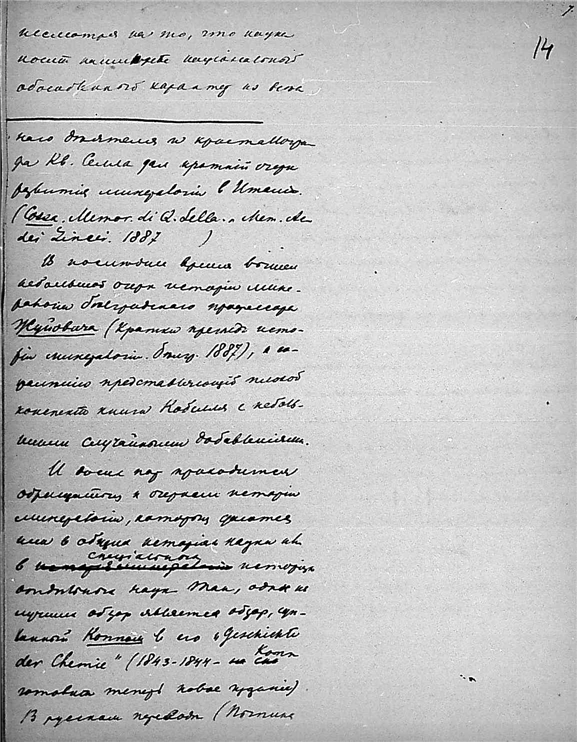 7.
14
несмотря на то, что наука
носит наимѣнѣе национальный
обособленный характер из всѣх
наго дѣятеля и кристаллогра
фа Кв. Селла дал краткий очерк
развития минералогии в Италии.
(Cossa. Memor. di Q. Sella. Mem. Ac
dei Lincei. 1887 )
В последнее время вышел
небольшой очерк истории мине-
ралогии белградского профессора
Жуйовича (Кратки преглед исто-
рии минералогии. Белгр. 1887), к со-
жалению представляющий плохой
конспект книги Кобелля с неболь-
шими случайными добавлениями.
И до сих пор приходится
обращаться к очеркам истории
минералогии, которые даются
или в общих историях науки или
специальных
в историях
отдельных наук. Так, одним из
лучших обзор является обзор, сде-
ланный Коппом в его "Geschichte
der Chemie" (1843-1844 - Копп
готовил теперь новое издание).
В русском переводе (